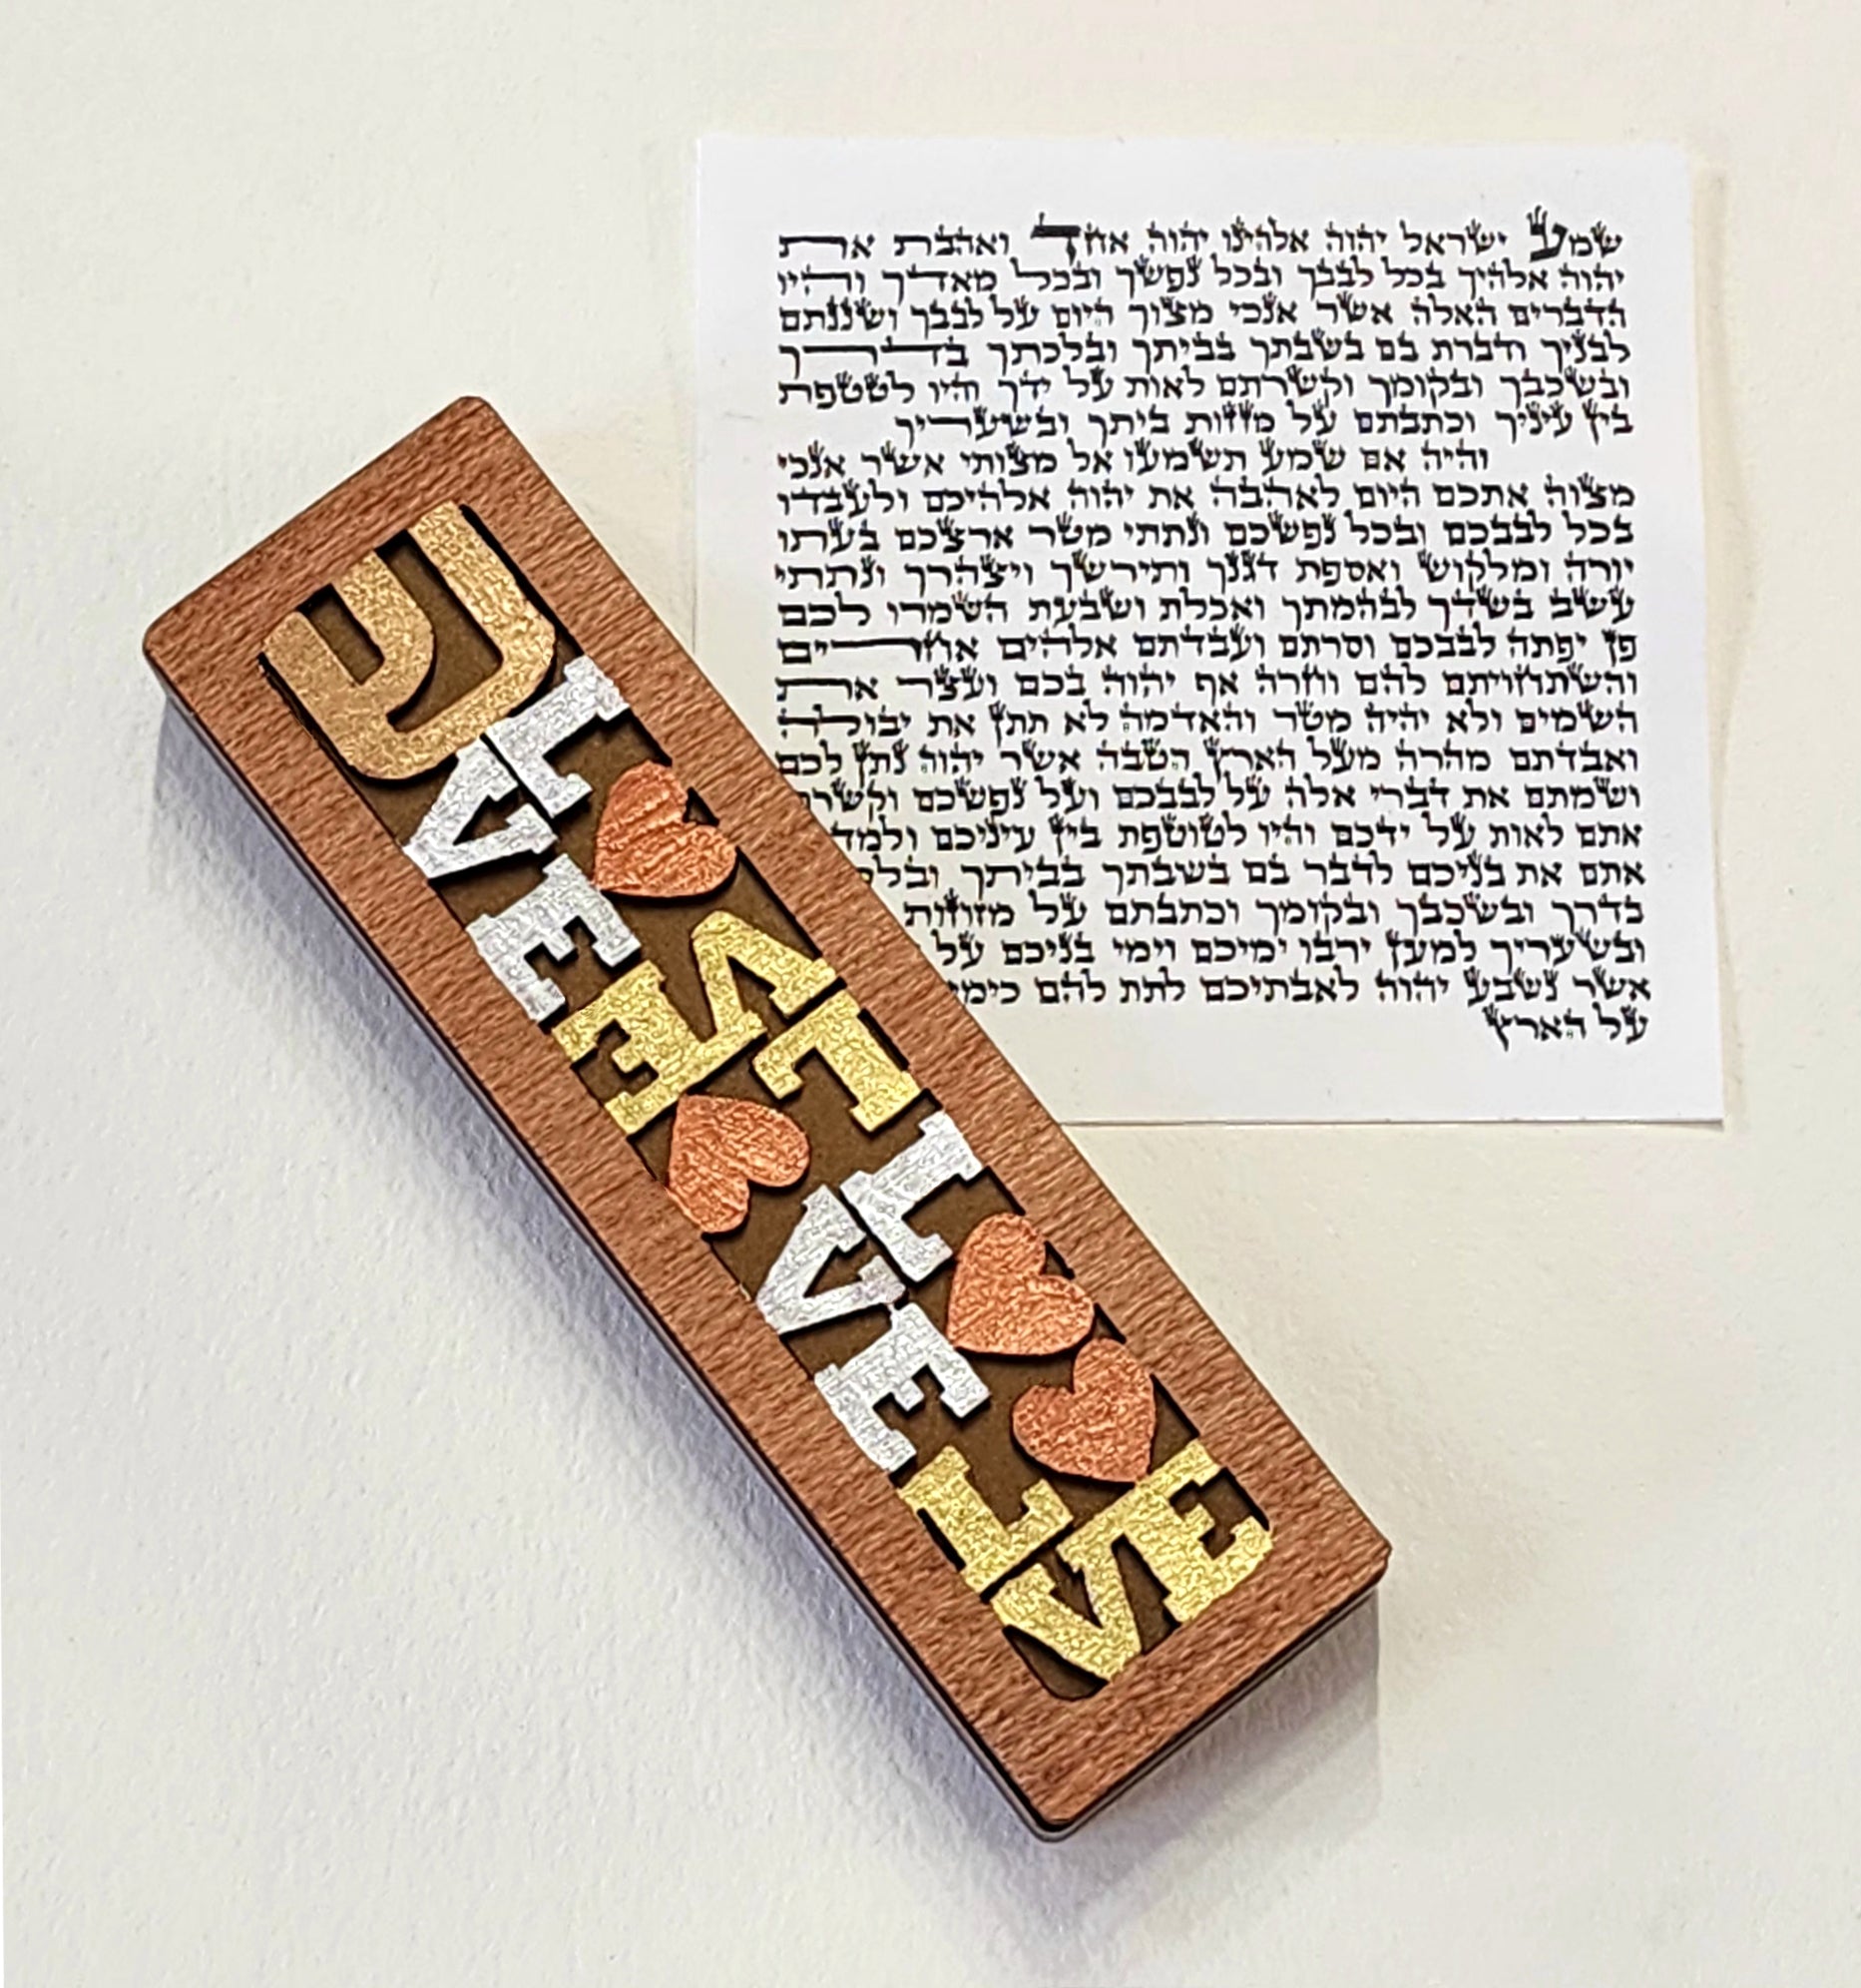 שמע ישראל יהוה אלהינו יהוה אחד ואהבת את
יהוה אלהיך בכל לבבך ובכל נפשך ובכל מאדך והיו
הדברים האלה אשר אנכי מצוך היום על לבבך ושננתם
לבניך ודברת בם בשבתך בביתך ובלכתך בדרך
ובשכבך ובקומך וקשרתם לאות על ידך והיו לטטפת
בין עיניך וכתבתם על מזזות ביתך ובשעריך
והיה אם שמע תשמעו אל מצותי אשר אנכי
מצוה אתכם היום לאהבה את יהוה אלהיכם ולעבדו
בכל לבבכם ובכל נפשכם ונתתי מטר ארצכם בעתו
יורה ומלקוש ואספת דגנך ותירשך ויצהרך ונתתי
עשב בשדך לבהמתך ואכלת ושבעת השמרו לכם
פן יפתה לבבכם וסרתם ועבדתם אלהים אחרים
והשתחויתם להם וחרה אף יהוה בכם ועצר את
השמים ולא יהיה מטר והאדמה לא תתן את יבולה
ואבדתם מהרה מעל הארץ הטבה אשר יהוה נתן לכם
ושמתם את דברי אלה על לבבכם ועל נפשכם
אתם לאות על ידכם והיו לטוטפת בין עיניכם
אתם את בניכם לדבר בם בשבתך בביתך
בדרך ובשכבך ובקומך וכתבתם על מזוזות
ובשעריך למען ירבו ימיכם וימי בניכם על
אשר נשבע יהוה לאבתיכם לתת להם כימי
על הארץ
ש
L♥
VE
L♥
VE
L♥
VE
L♥
VE